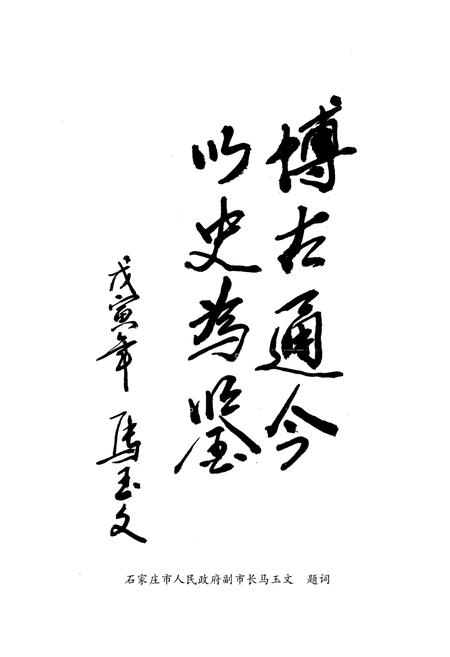 博古通今
以史為鉴
戊寅年 馬玉文
石家庄市人民政府副市长马玉文 题词